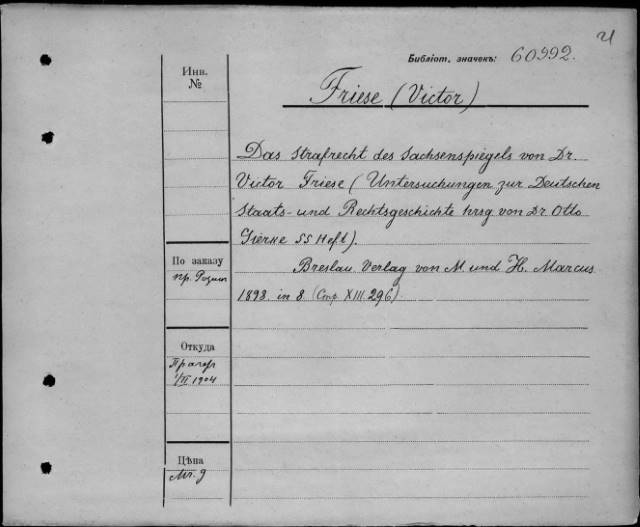 21
Библіот. значекъ: 60992.
Инв.
№
Friese (Victor)
Das Strafrecht des Sachsenspiegels von Dr.
Victor Friese (Untersuchungen zur Deutschen
Staats- und Rechtsgeschichte hrsg von Dr Otto
Gierke 55 Heft).
Breslau. Verlag von M. und H. Marcus
1898. in 8. (Стр. XIII. 296)
По заказу
пр.
Откуда
Прагер
1904
Цѣна
Mr. 9